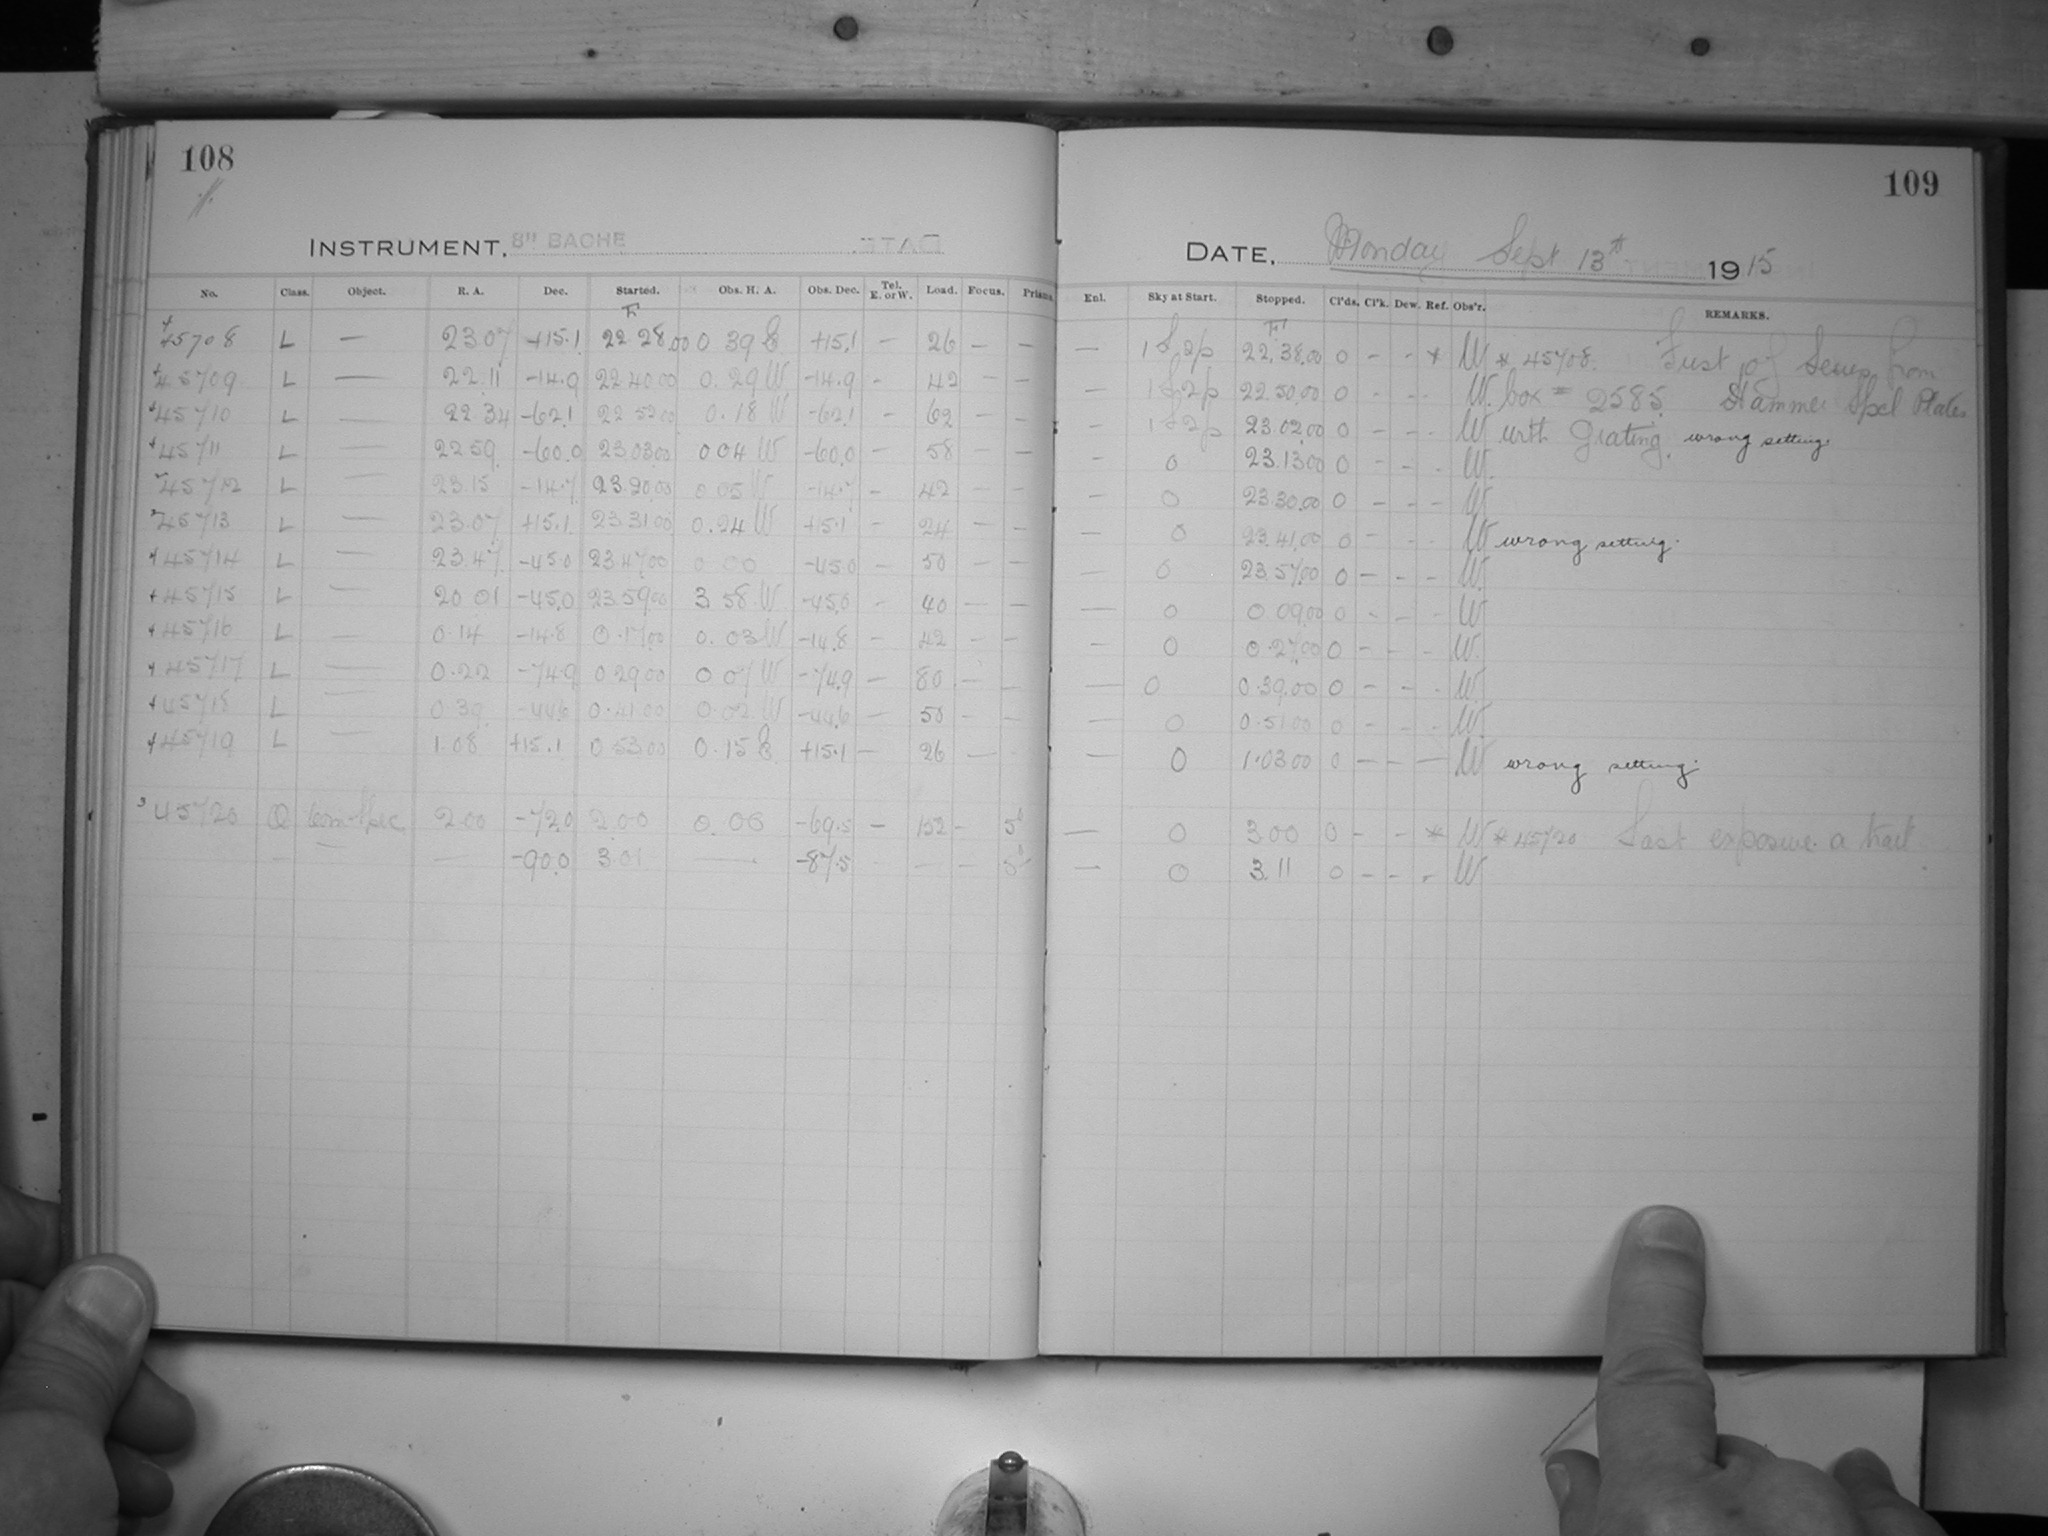 108
109
INSTRUMENT, 8" BACHE
DATE, Monday Sept 13th 1915
No. Class. Object. R. A. Dec. Started. Obs. H. A. Obs. Dec. Tel. E. or W. Load. Focus. Prisms
Enl. Sky at Start. Stopped. Cl'ds. Cl'k. Dew. Ref. Obs'r. REMARKS.
45708 L — 23 07 +15.1 22 28.00 0 39 E +15.1 — 26 — —
— 22.38.00 0 - - * W * 45708. First of Series from
45709 L — 22.11 -14.9 22 40 00 0.29 W -14.9 - 42 — —
— 22.50.00 0 - - - W. box = 2585. Hammer Spel Plates
45710 L — 22 34 -62.1 22 52 00 0.18 W -62.1 - 62 — —
- 23.02.00 0 - - - W with Grating. wrong setting.
45711 L — 22 59 -60.0 23 03 00 0 04 W -60.0 - 58 — —
- 0 23.13 00 0 - - - W.
45712 L — 23.15 -14.7 23.20 00 0 05 W -14.7 — 42 — —
— 0 23.30.00 0 - - - W
45713 L — 23.07 +15.1 23 31 00 0.24 W +15.1 - 24 — —
— 0 23.41.00 0 - - - W wrong setting.
45714 L — 23.47 -45.0 23.47 00 0 00 -45.0 — 50 — —
— 0 23.57.00 0 — - - W.
45715 L — 20 01 -45.0 23 59 00 3 58 W -45.0 - 40 — —
— 0 0 09.00 0 - - - W
45716 L — 0.14 -14.8 0.17 00 0.03 W -14.8 — 42 — —
— 0 0.27.00 0 - - - W.
45717 L — 0.22 -74.9 0 29 00 0 07 W -74.9 — 80 — —
— 0 0.39.00 0 - - - W.
45718 L — 0.39 -44.6 0.41 00 0.02 W -44.6 — 50 — —
— 0 0.51 00 0 - - - W.
45719 L — 1.08 +15.1 0 53 00 0.15 E +15.1 — 26 — -
— 0 1.03 00 0 — — — W wrong setting.
45720 2 00 -72.0 2.00 0.00 -69.5 — 132 -
— 0 3.00 0 - - * W * 45720 Last exposure a trail
— -90.0 3 01 — -87.5 — —
— 0 3.11 0 - - - W